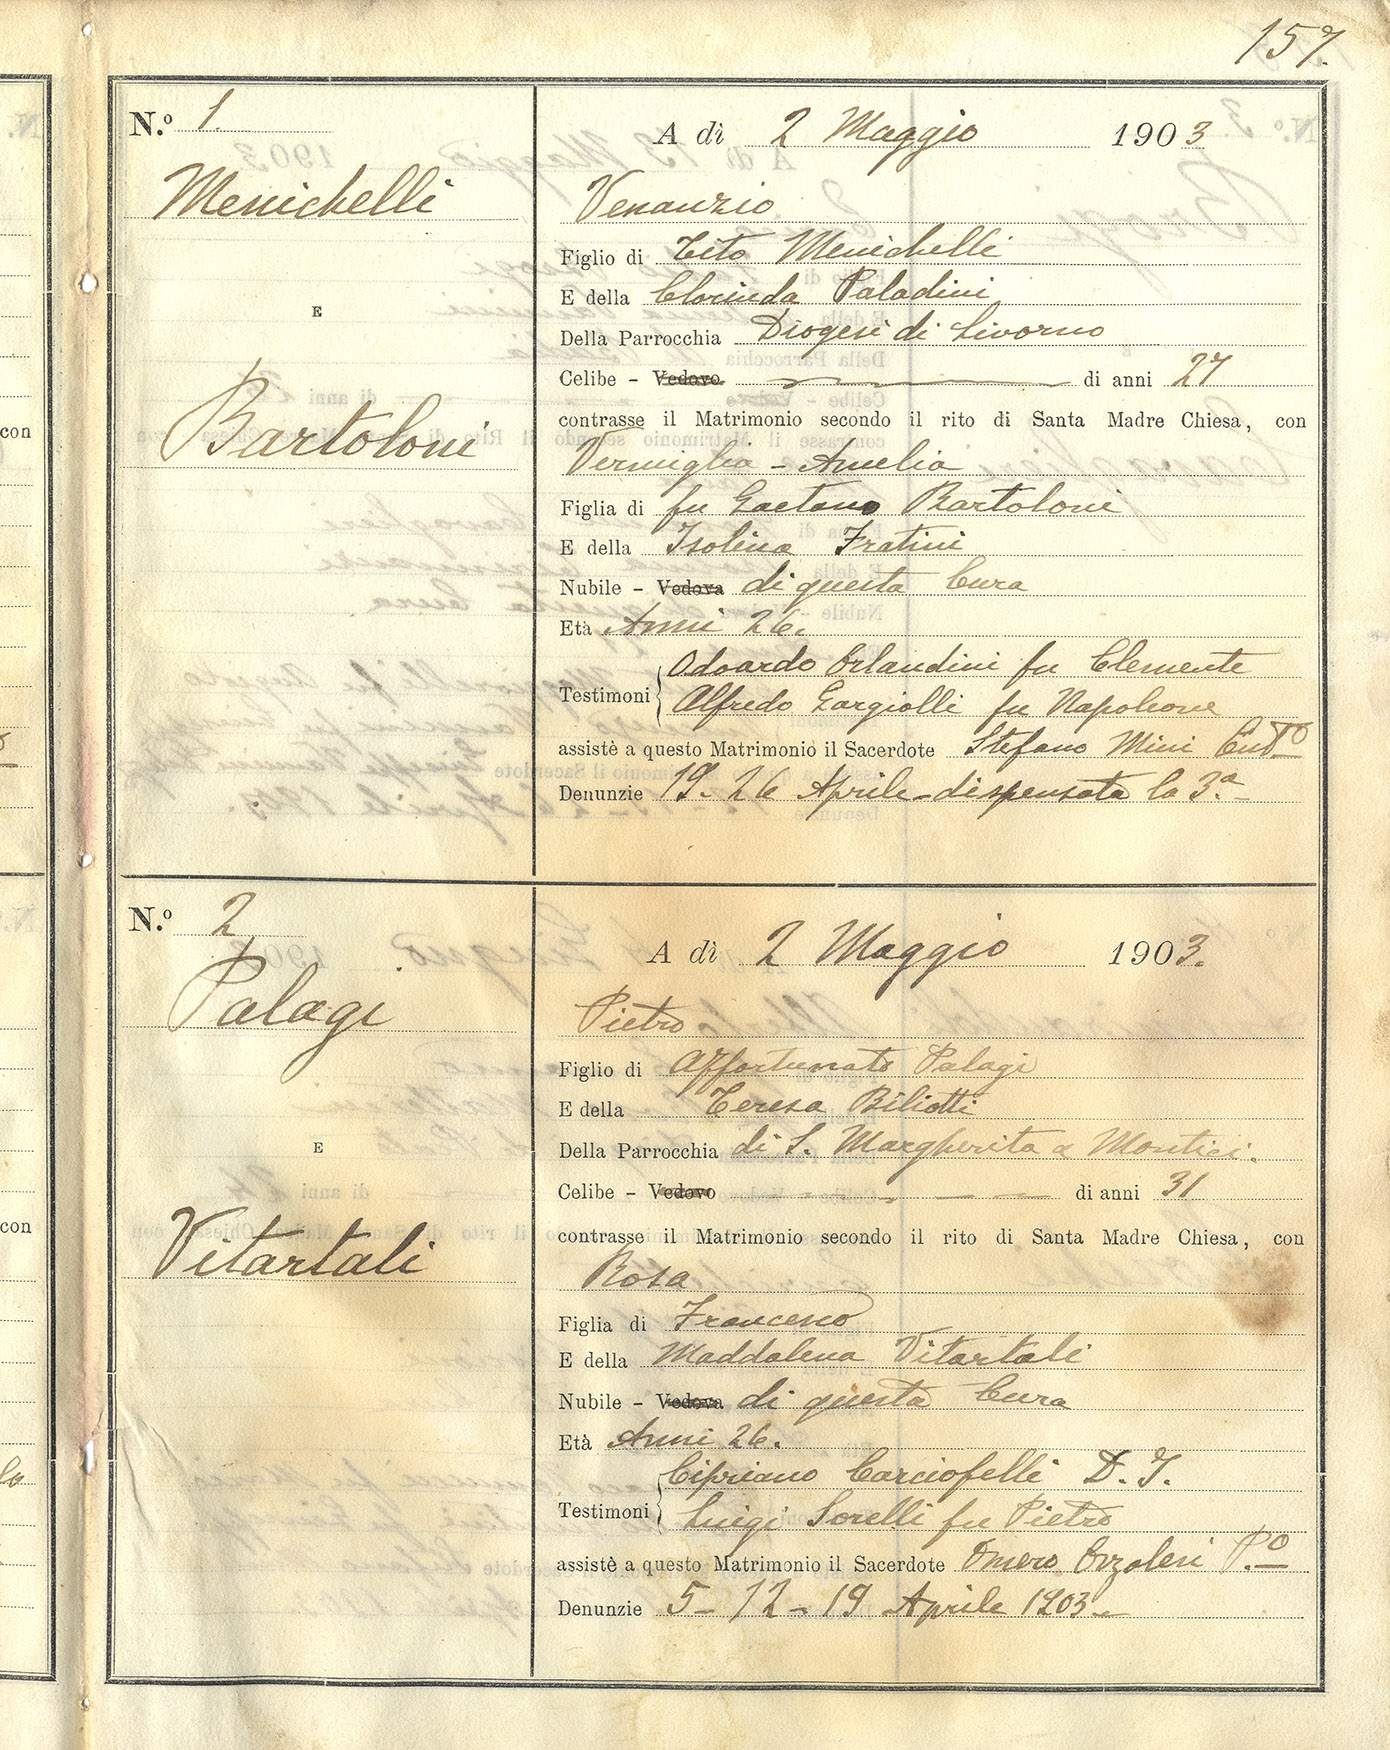 157.
N.º 1.
Menichelli
E
Bartoloni
A dì 2 Maggio 1903
Venanzio
Figlio di Tito Menichelli
E della Clorinda Paladini
Della Parrocchia Diogesi di Livorno
Celibe – Vedovo di anni 27
contrasse il Matrimonio secondo il rito di Santa Madre Chiesa, con
Vermiglia - Amelia
Figlia di fu Gaetano Bartoloni
E della Isolina Fratini
Nubile – Vedova di questa Cura
Età Anni 26.
Testimoni Odoardo Orlandini fu Clemente
Alfredo Gargiolli fu Napoleone
assistè a questo Matrimonio il Sacerdote Stefano Mini
Denunzie 19. 26 Aprile - dispensata la 3.ª -
N.º 2
Palagi
E
Vitartali
A dì 2 Maggio 1903.
Pietro
Figlio di Affortunato Palagi
E della Teresa Biliotti
Della Parrocchia di S. Margherita a Montici.
Celibe – Vedovo di anni 31
contrasse il Matrimonio secondo il rito di Santa Madre Chiesa, con
Rosa
Figlia di Francesco
E della Maddalena Vitartali
Nubile – Vedova di questa Cura
Età Anni 26.
Testimoni Cipriano Carciofelli D. I.
Luigi Sorelli fu Pietro
assistè a questo Matrimonio il Sacerdote Omero Orzalesi P.º
Denunzie 5 - 12 - 19 Aprile 1903 -
con
con